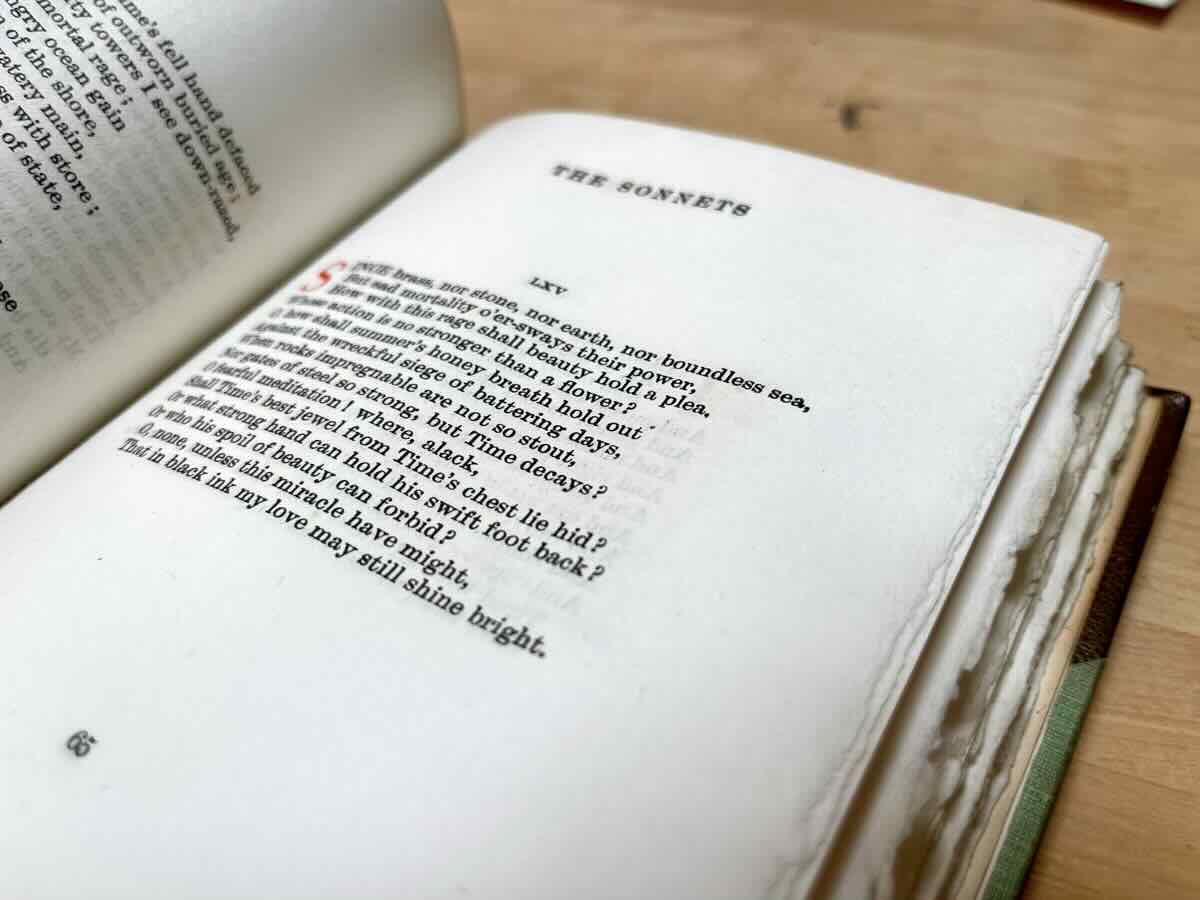 me's fell hand defaced
of outworn buried age;
ty towers I see down-rased,
mortal rage;
ngry ocean gain
of the shore,
atery main,
ss with store;
of state,
ose
THE SONNETS
LXV
SINCE brass, nor stone, nor earth, nor boundless sea,
But sad mortality o'er-sways their power,
How with this rage shall beauty hold a plea,
Whose action is no stronger than a flower?
O, how shall summer's honey breath hold out
Against the wreckful siege of battering days,
When rocks impregnable are not so stout,
Nor gates of steel so strong, but Time decays?
O fearful meditation! where, alack,
Shall Time's best jewel from Time's chest lie hid?
Or what strong hand can hold his swift foot back?
Or who his spoil of beauty can forbid?
O, none, unless this miracle have might,
That in black ink my love may still shine bright.
65